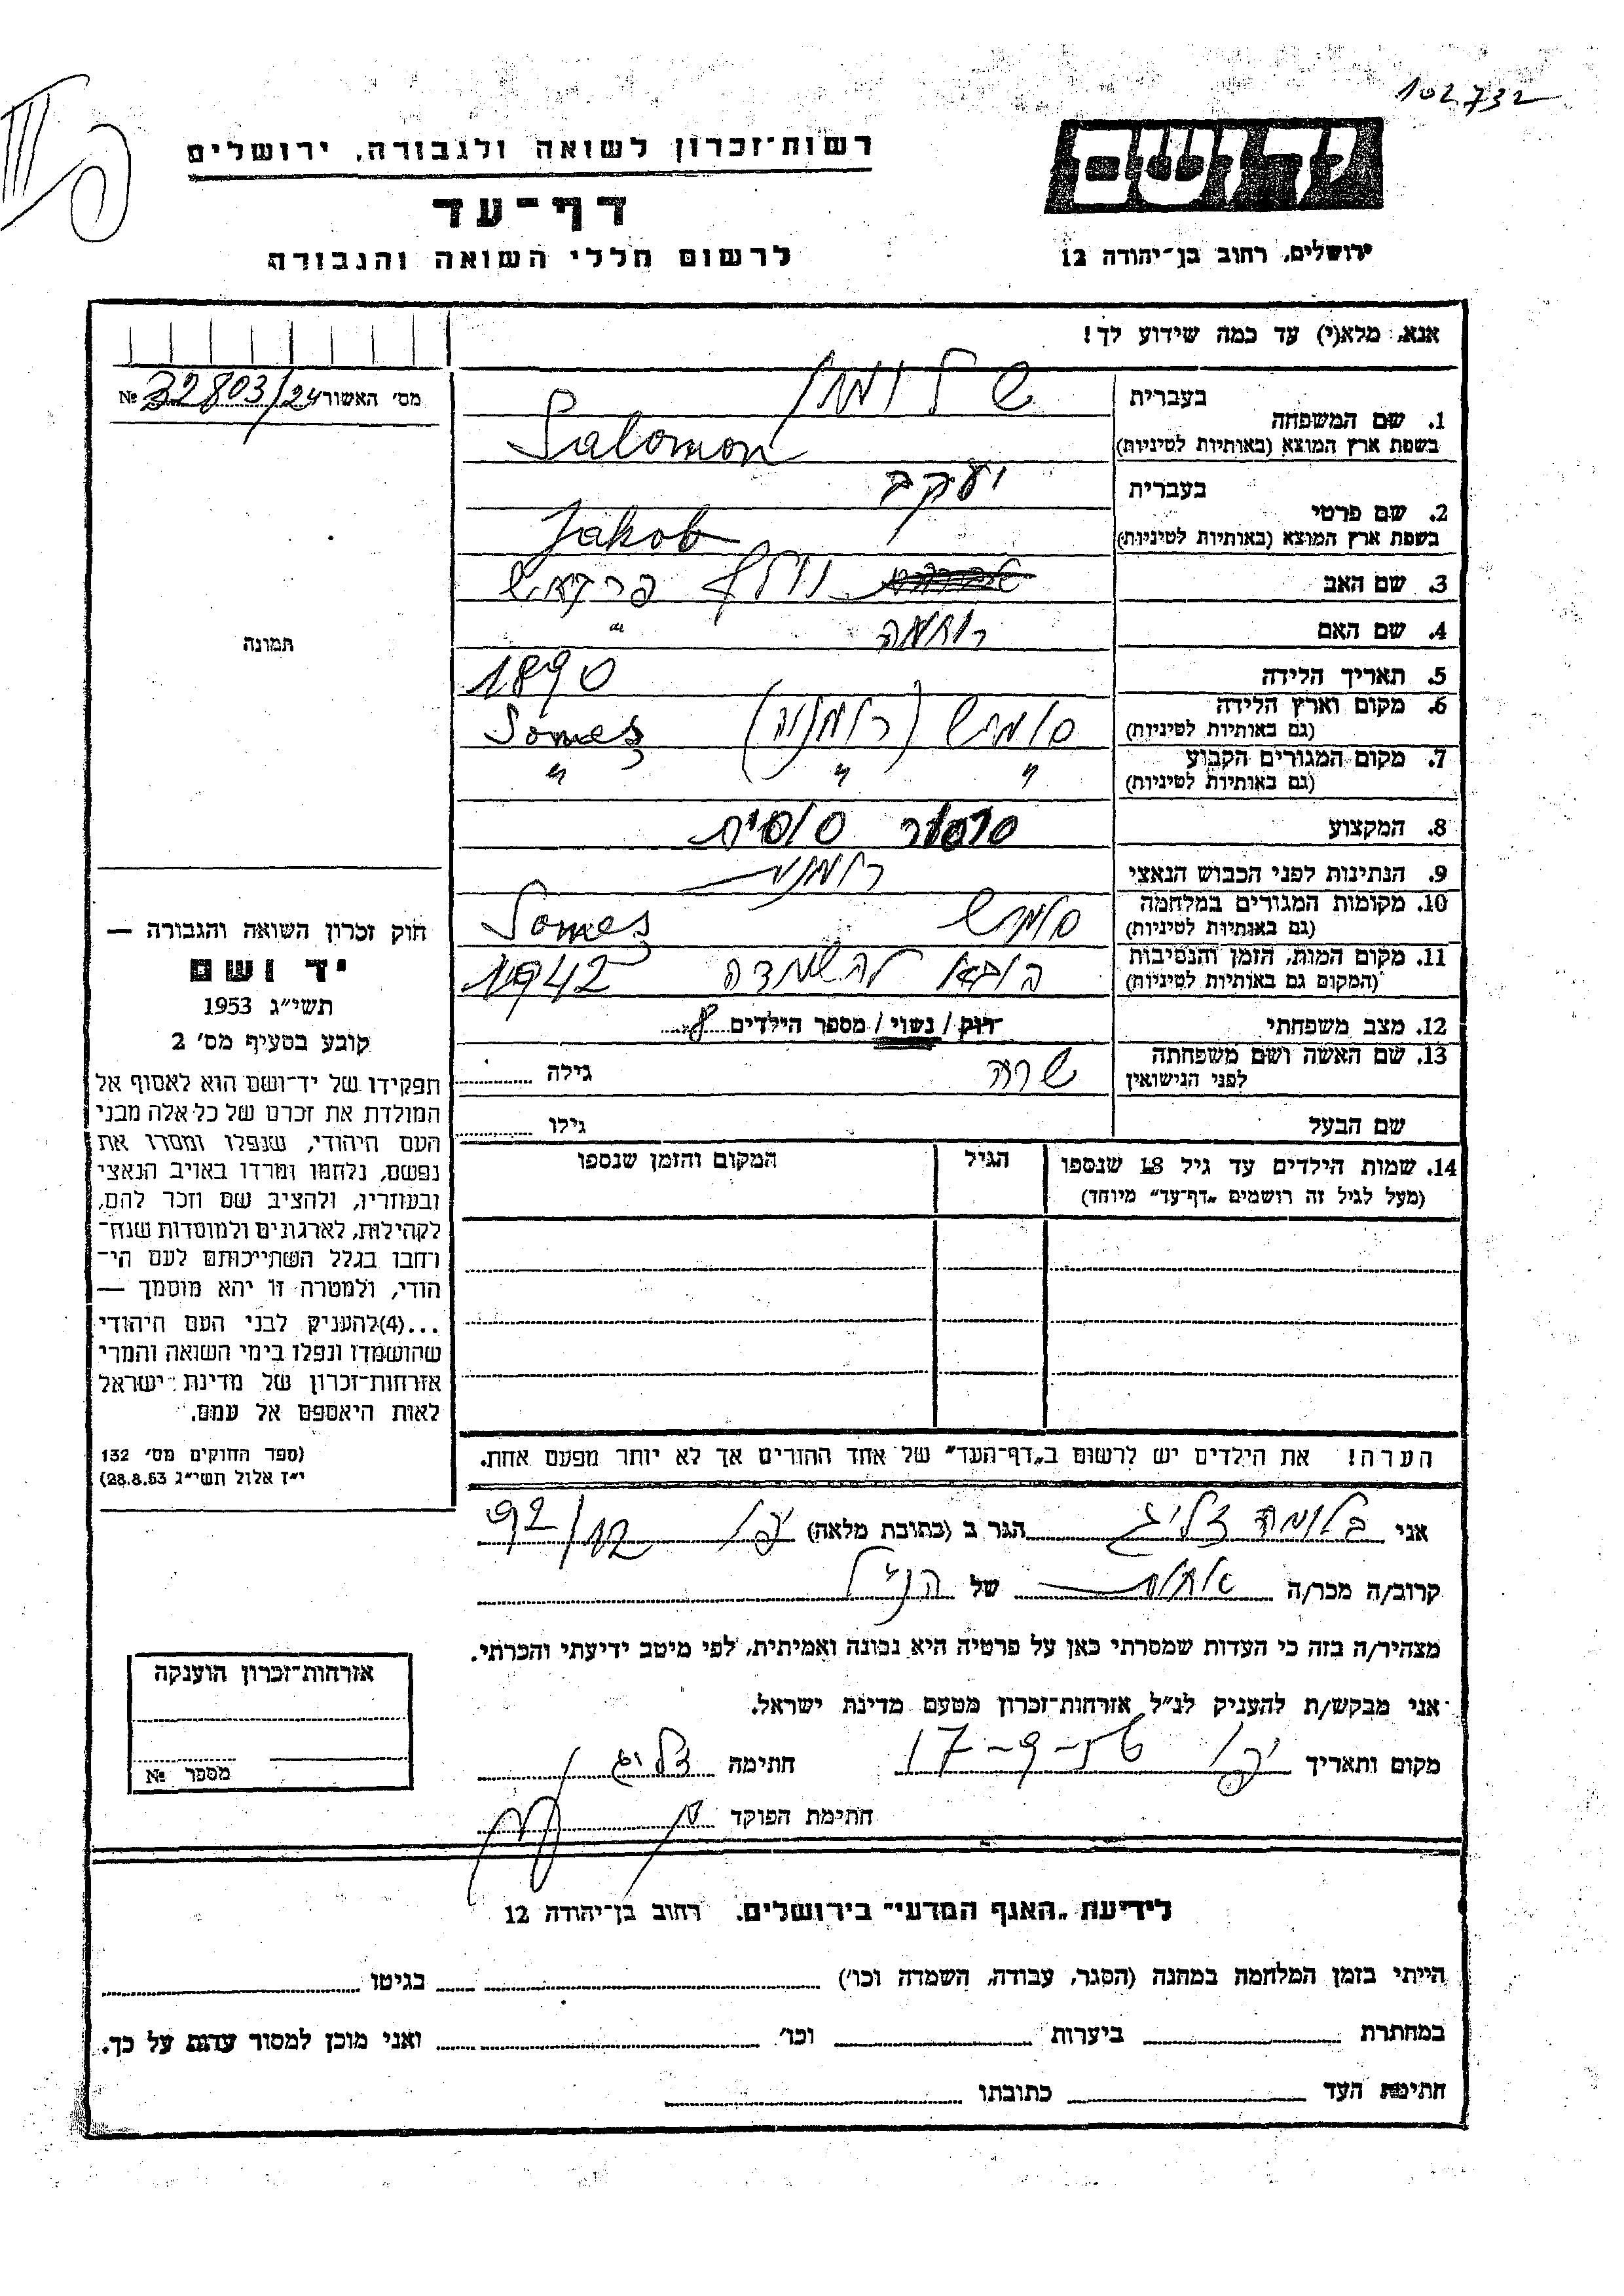 102732
רשות-זכרון לשואה ולגבורה, ירושלים
יד ושם
דף-עד
לרשום חללי השואה והגבורה
ירושלים, רחוב בן-יהודה 12
אנא, מלא(י) עד כמה שידוע לך!
מס׳ האשור 32803/24 №
1. שם המשפחה בעברית
בשפת ארץ המוצא (באותיות לטיניות) Salomon
2. שם פרטי בעברית יעקב
בשפת ארץ המוצא (באותיות לטיניות) Jakob
3. שם האב וולף
4. שם האם רוחמה "
תמונה
5. תאריך הלידה 1890
6. מקום וארץ הלידה (רומניה) Someș
(גם באותיות לטיניות)
7. מקום המגורים הקבוע " " "
(גם באותיות לטיניות)
8. המקצוע סרסור סוסים
9. הנתינות לפני הכבוש הנאצי
10. מקומות המגורים במלחמה סומש Someș
(גם באותיות לטיניות)
11. מקום המות, הזמן והנסיבות הובא להשמדה 1942
(המקום גם באותיות לטיניות)
12. מצב משפחתי רוק / נשוי / מספר הילדים 8
13. שם האשה ושם משפחתה שרה גילה
לפני הנישואין
שם הבעל גילו
14. שמות הילדים עד גיל 18 שנספו הגיל המקום והזמן שנספו
(מעל לגיל זה רושמים „דף-עד" מיוחד)
הערה! את הילדים יש לרשום ב„דף-העד" של אחד ההורים אך לא יותר מפעם אחת.
חוק זכרון השואה והגבורה —
יד ושם
תשי״ג 1953
קובע בסעיף מס׳ 2
תפקידו של יד-ושם הוא לאסוף אל
המולדת את זכרם של כל אלה מבני
העם היהודי, שנפלו ומסרו את
נפשם, נלחמו ומרדו באויב הנאצי
ובעוזריו, ולהציב שם וזכר להם,
לקהילות, לארגונים ולמוסדות שנח-
רבו בגלל השתייכותם לעם הי-
הודי, ולמטרה זו יהא מוסמך —
...(4)להעניק לבני העם היהודי
שהושמדו ונפלו בימי השואה והמרי
אזרחות-זכרון של מדינת ישראל
לאות היאספם אל עמם.
(ספר החוקים מס׳ 132
י״ז אלול תשי״ג 28.8.53)
אני בלומה זליג הגר ב (כתובת מלאה) 92/12
קרוב/ה מכר/ה אחות של הנ״ל
מצהיר/ה בזה כי העדות שמסרתי כאן על פרטיה היא נכונה ואמיתית, לפי מיטב ידיעתי והכרתי.
אני מבקש/ת להעניק לנ״ל אזרחות-זכרון מטעם מדינת ישראל.
מקום ותאריך חתימה זליג
חתימת הפוקד
אזרחות-זכרון הוענקה
מספר №
לידיעת „האגף המדעי" בירושלים. רחוב בן-יהודה 12
הייתי בזמן המלחמה במחנה (הסגר, עבודה, השמדה וכו׳) בגיטו
במחתרת ביערות וכו׳ ואני מוכן למסור עדות על כך.
חתימת העד כתובתו